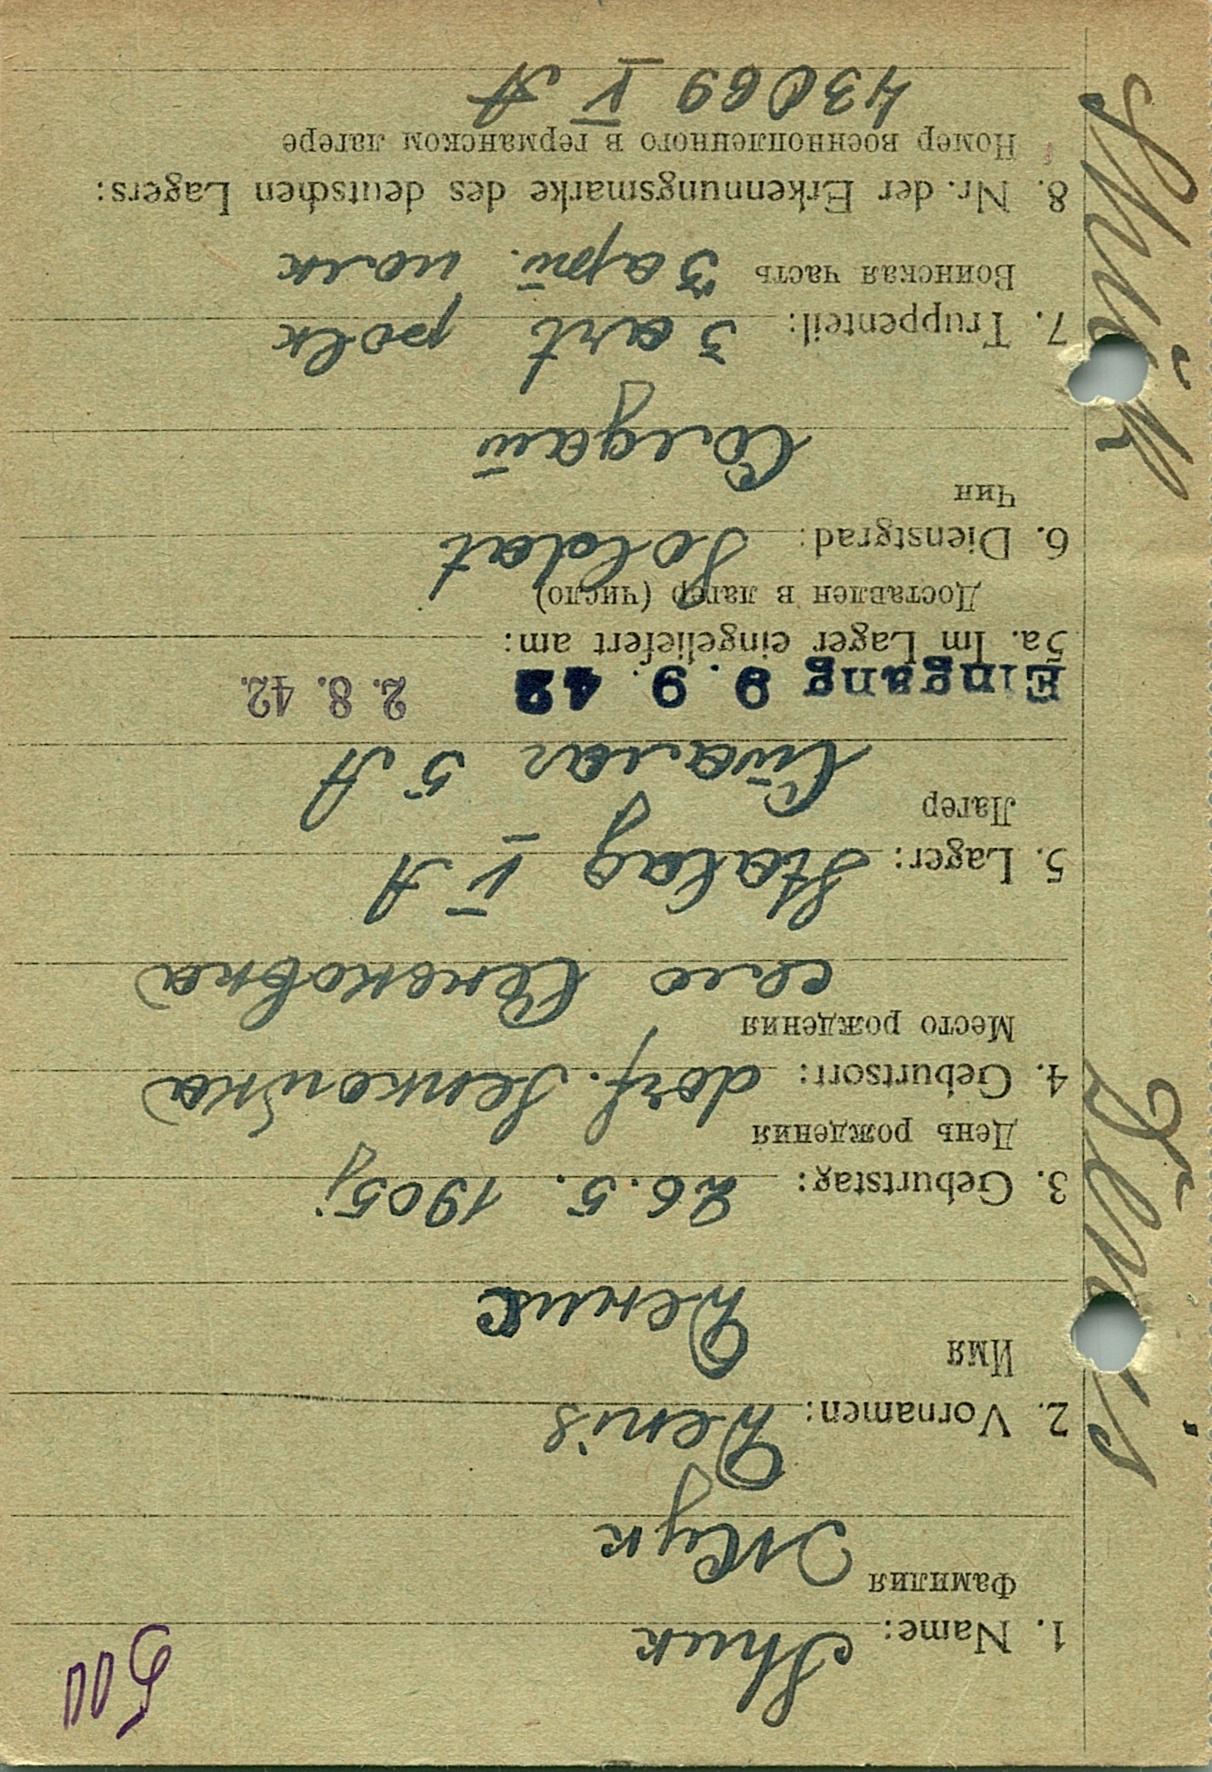 500
1. Name: Shuk
Фамилия Жук
2. Vornamen: Denis
Имя Денис
3. Geburtstag: 26. 5. 1905j
День рождения
4. Geburtsort: dorf. Senkowka
Место рождения
село Сеньковка
5. Lager: Stalag V A
Лагерь
Шталаг 5 А
Eingang 9. 9. 42 2. 8. 42.
5a. Im Lager eingeliefert am:
Доставлен в лагерь (число)
6. Dienstgrad: Soldat
Чин
Солдат
7. Truppenteil: 3 art polk
Воинская часть 3 арт. полк
8. Nr. der Erkennungsmarke des deutschen Lagers:
Номер военнопленного в германском лагере
43069 V A
Shuk
Denis